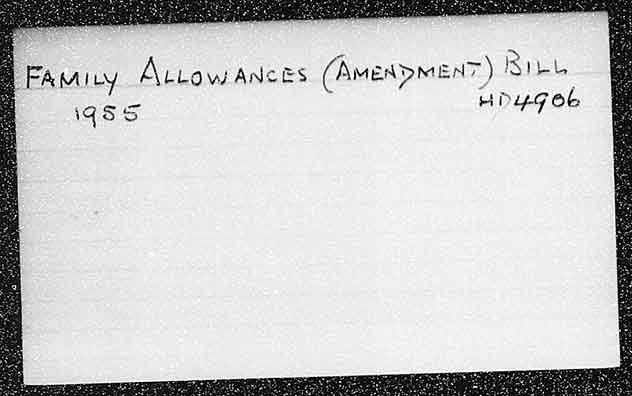 FAMILY ALLOWANCES (AMENDMENT) BILL
1955 HD4906